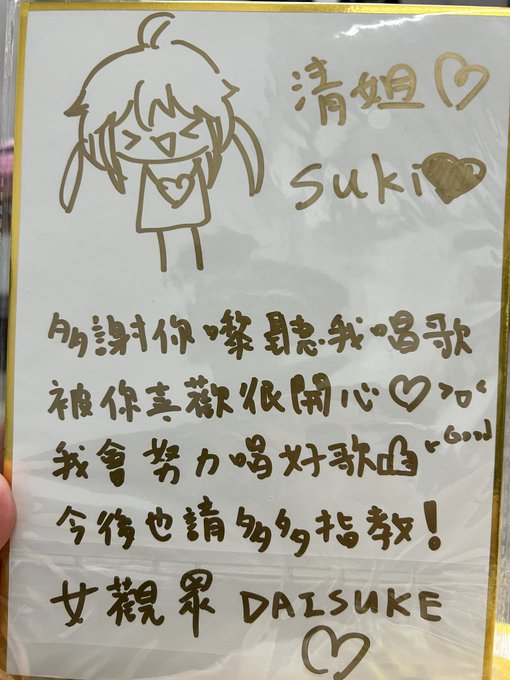 清姐♡
suki♥
多謝你嚟聽我唱歌
被你喜歡很開心♡>o<
我會努力唱好歌👍"Good
今後也請多多指教!
女觀眾 DAISUKE
♡